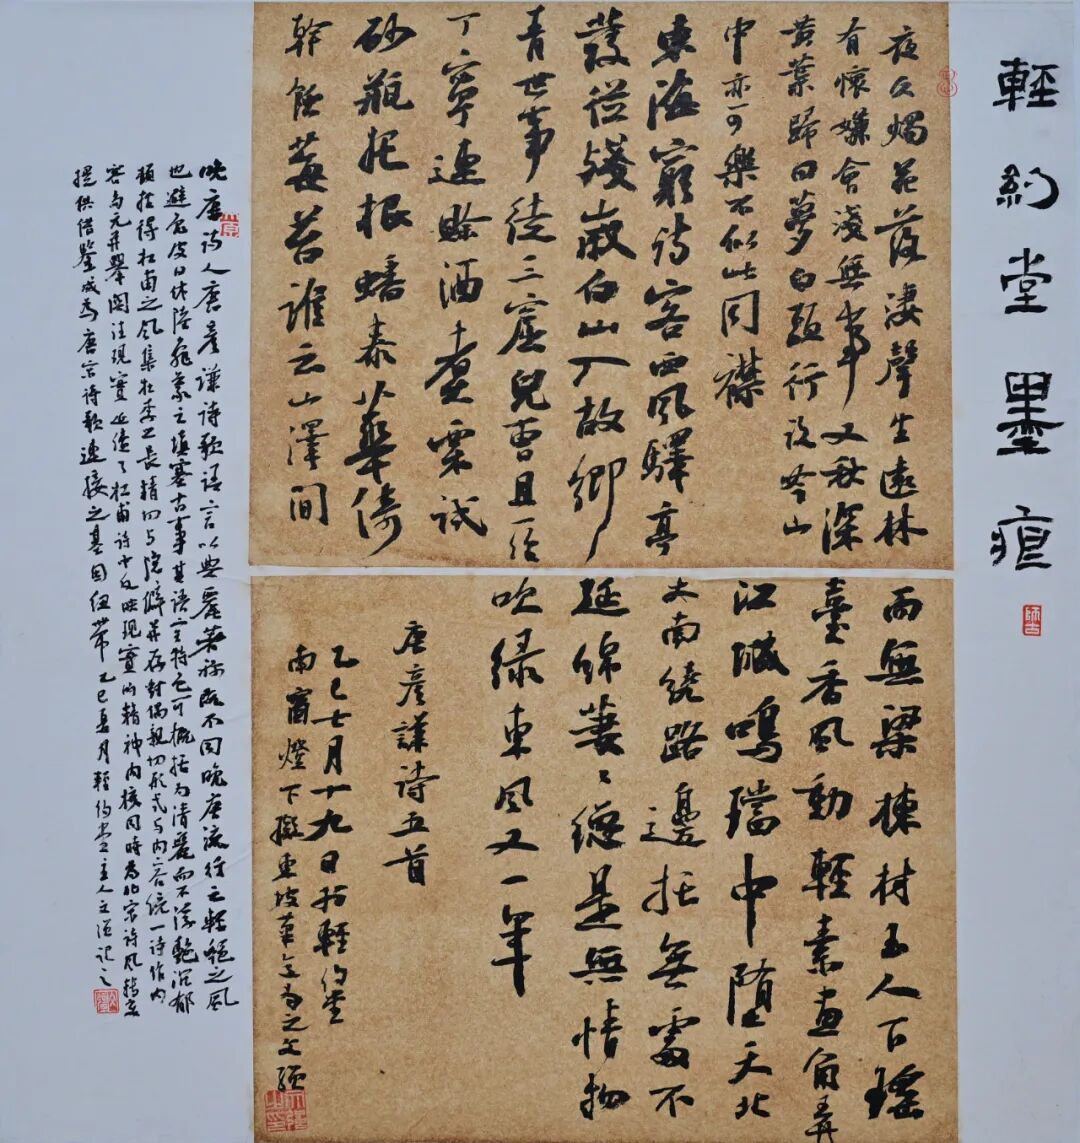 輕約堂墨痕
夜久燭花落淒聲生遠林
有懷嫌會淺無事又秋深
黃葉歸田夢白頭行路吟山
中亦可樂不似此同襟
東海窮詩客西風驛亭
發從殘歲白山入故鄉
青世事徒三窟兒曹且一經
丁寧速賒酒煮栗試
砂瓶托根蟠泰華倚
幹飽莓苔誰云山澤間
而無梁棟材玉人下瑤
臺香風動輕素畫角弄
江城鳴璫中墮天北
天南繞路邊托無處不
延綿萋〻總是無情物
吹綠東風又一年
唐彥謙詩五首
乙巳七月十九日於輕約堂
南窗燈下擬東坡筆意為之文強
晚唐詩人唐彥謙詩歌語言以典麗著稱既不同晚唐流行之輕艷之風
也避免皮日休陸龜蒙之填塞古事其語言特色可概括為清麗而不浮艷沉郁
頓挫得杜甫之風集杜李之長精切與隱僻並存對偶親切形式與內容統一詩作內
容與元並舉關注現實延續了杜甫詩中反映現實的精神內核同時為北宋詩風轉變
提供借鑒成為唐宋詩歌連接之基因紐帶乙巳夏月輕約堂主人文強記之